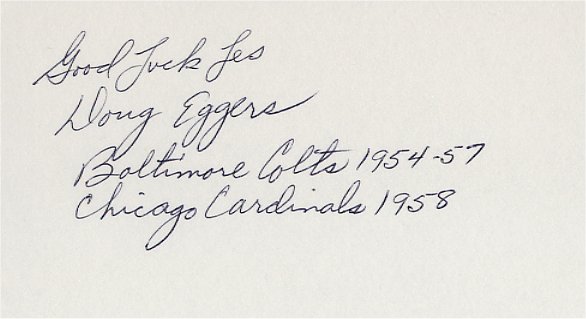 Good Luck Les
Doug Eggers
Baltimore Colts 1954-57
Chicago Cardinals 1958